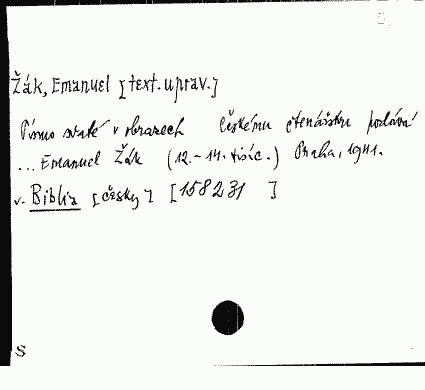 Žák, Emanuel [text. uprav.]
Písmo svaté v obrazech českému čtenářstvu podává
... Emanuel Žák (12.-14. tisíc.) Praha, 1941.
v. Biblia [česky] [158231 ]
S